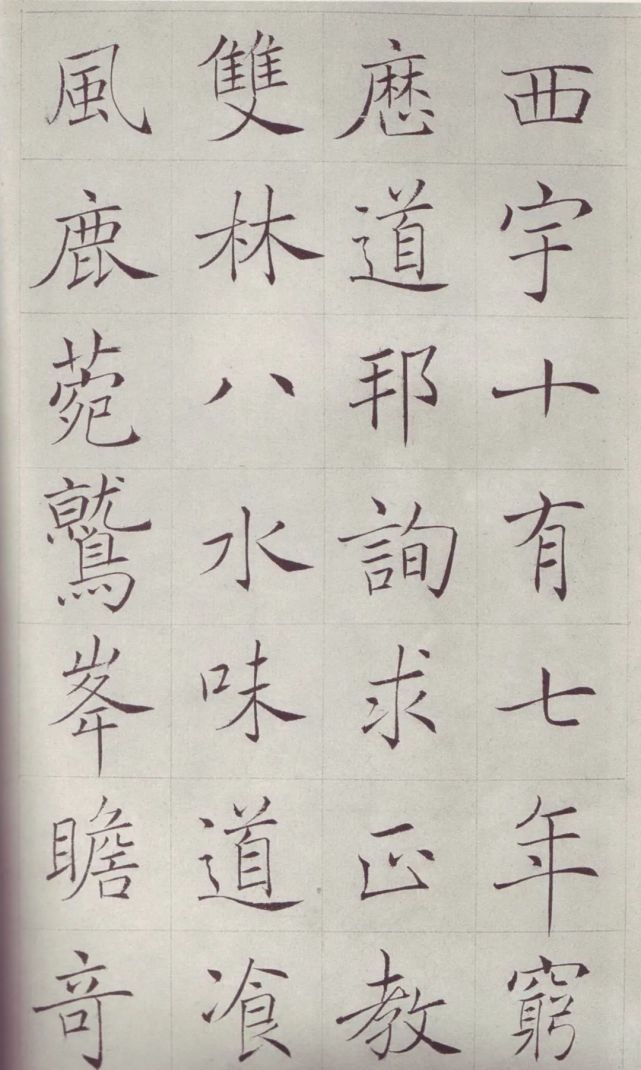 西宇十有七年窮
歷道邦詢求正教
雙林八水味道飡
風鹿菀鷲峯瞻奇